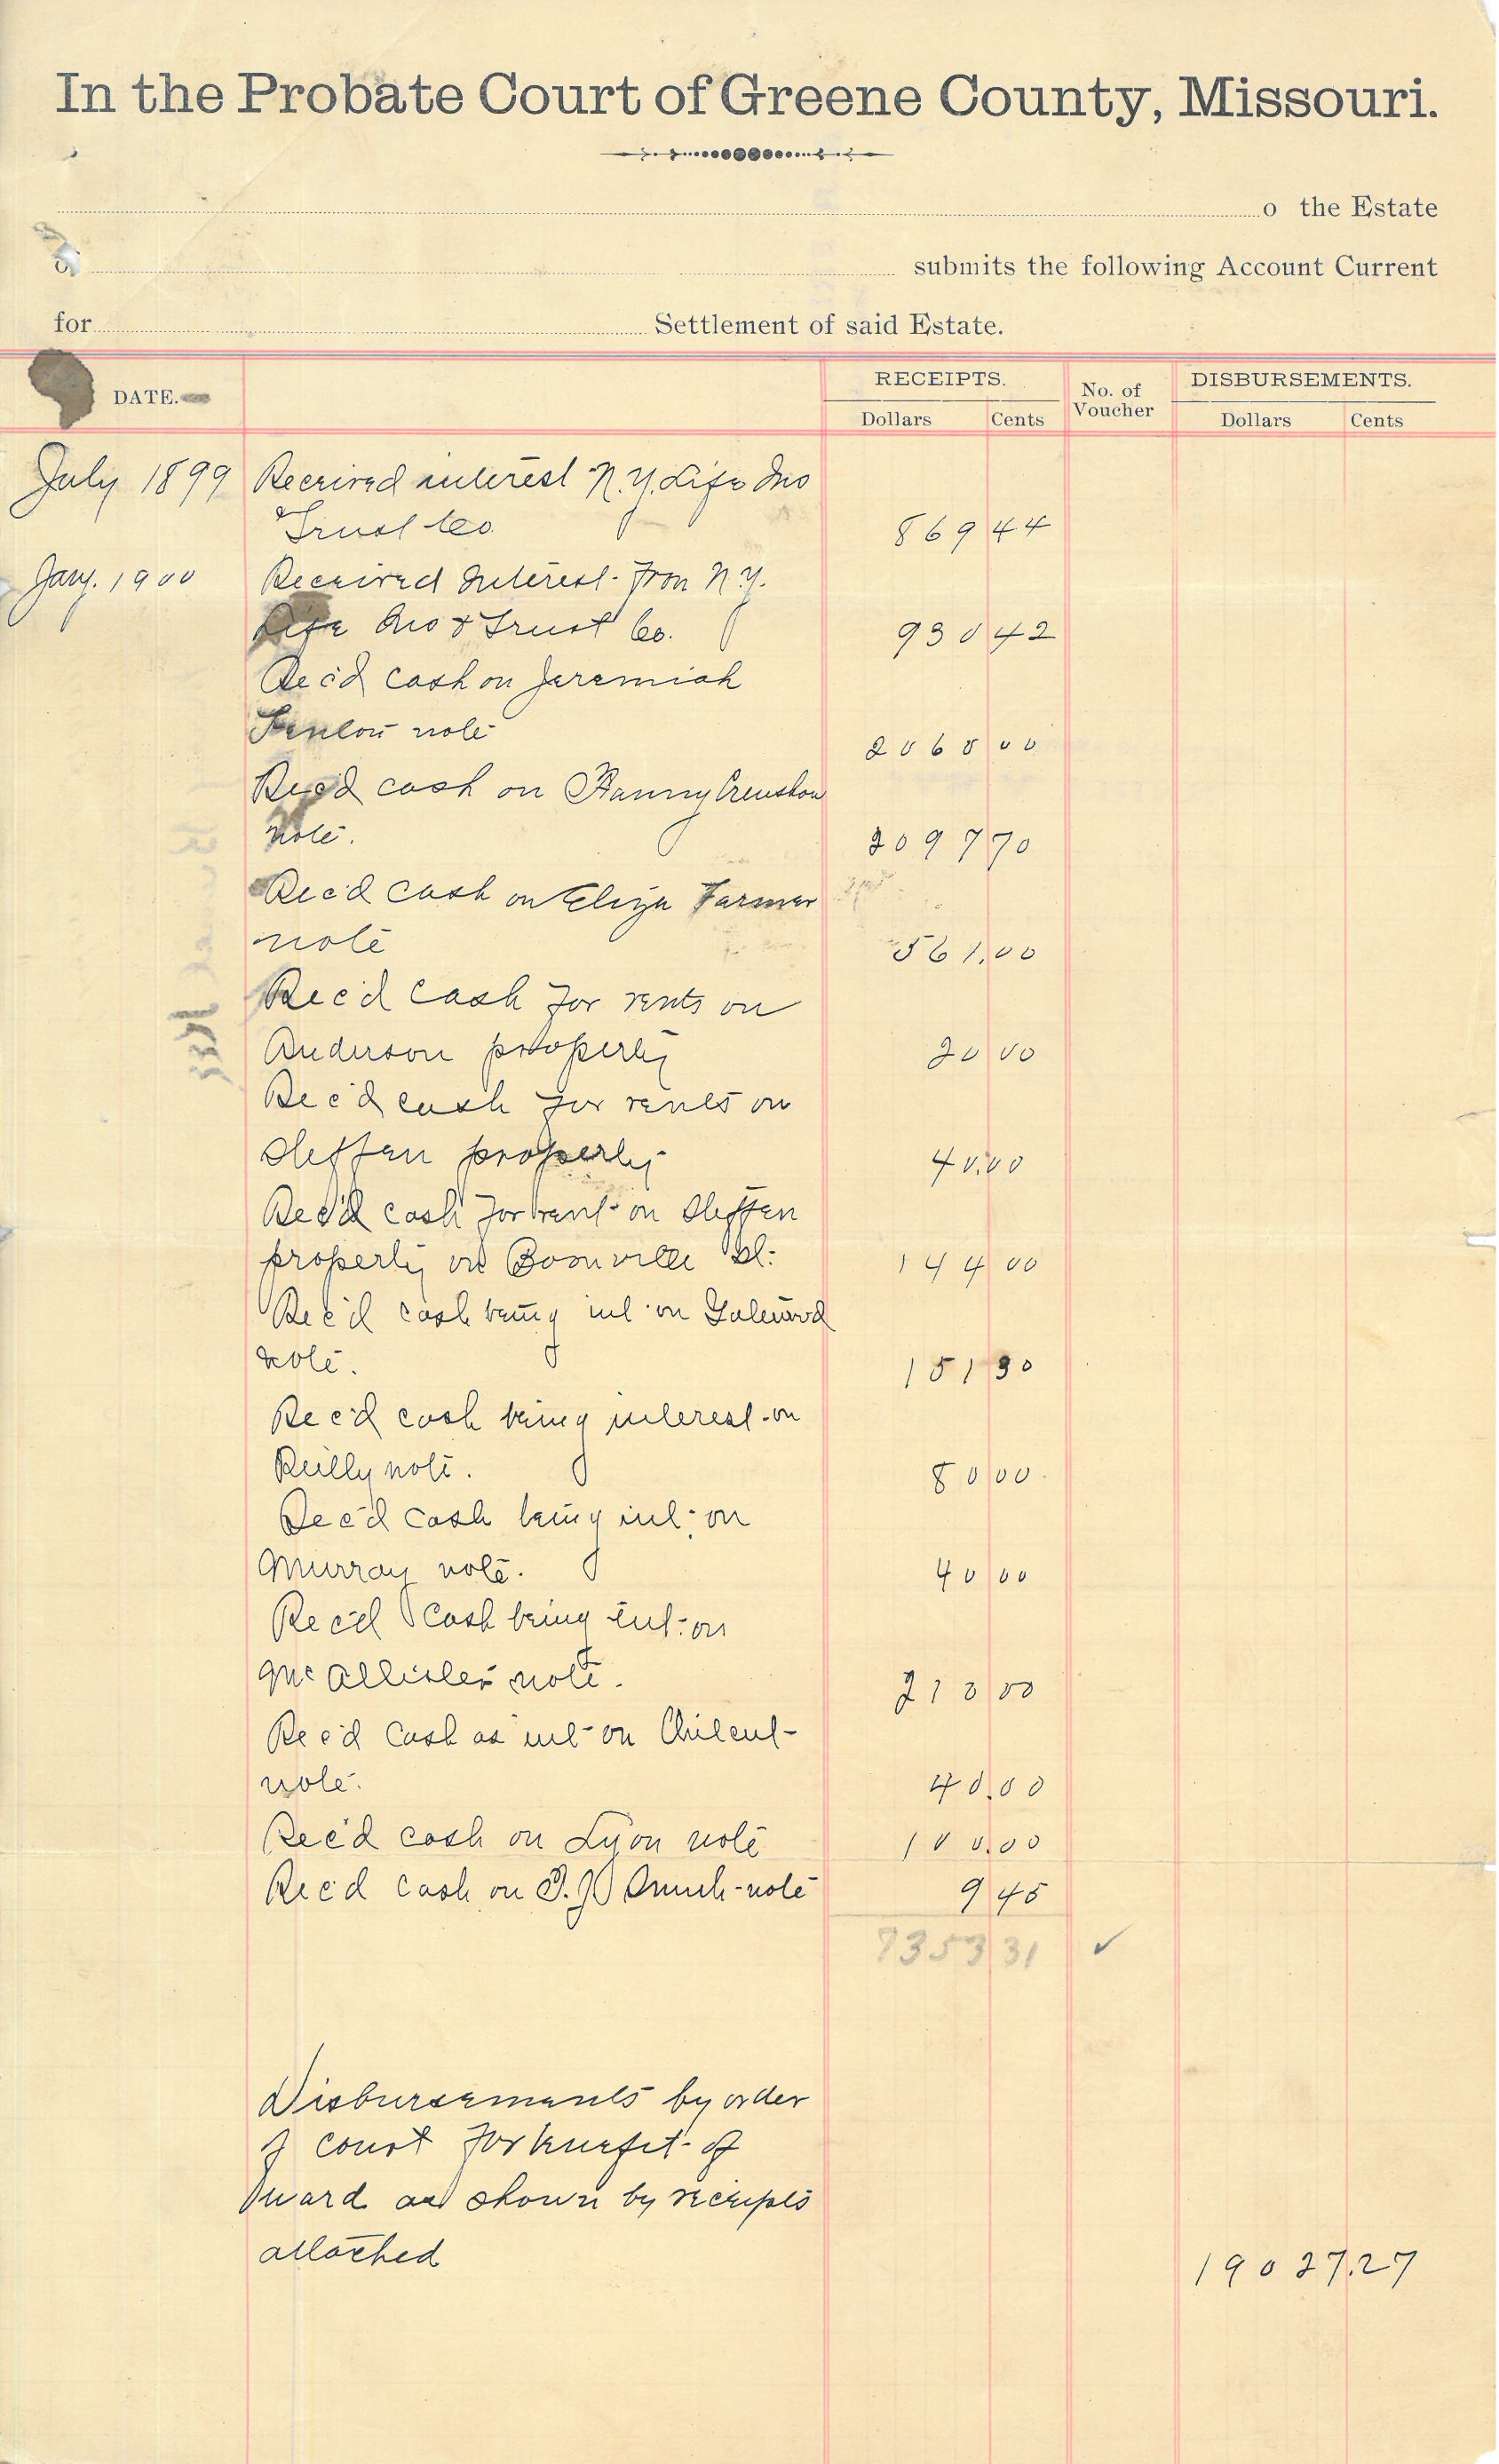 In the Probate Court of Greene County, Missouri.
o the Estate
of submits the following Account Current
for Settlement of said Estate.
DATE. RECEIPTS. No. of Voucher DISBURSEMENTS.
Dollars Cents Dollars Cents
July 1899 Received interest N.Y. Life Ins
& Trust Co. 869 44
Jany. 1900 Received Interest from N.Y.
Life Ins & Trust Co. 930 42
Rec'd cash on Jeremiah
Fenlon note 2060 00
Rec'd cash on Fanny Crenshaw
note. 2097 70
Rec'd cash on Eliza Farmer
note 561.00
Rec'd cash for rents on
Anderson property 20 00
Rec'd cash for rents on
Steffen property 40.00
Rec'd cash for rent on Steffen
property on Boonville St. 144 00
Rec'd cash being int. on
note. 151 30
Rec'd cash being interest on
Reilly note. 80 00
Rec'd cash being int. on
Murray note. 40 00
Rec'd cash being int. on
McAllister note. 210 00
Rec'd Cash as int on Chilcut
note. 40.00
Rec'd cash on Lyon note 100.00
Rec'd cash on note 9 45
7353 31 ✓
Disbursements by order
of court for benefit of
ward as shown by receipts
attached 19027.27